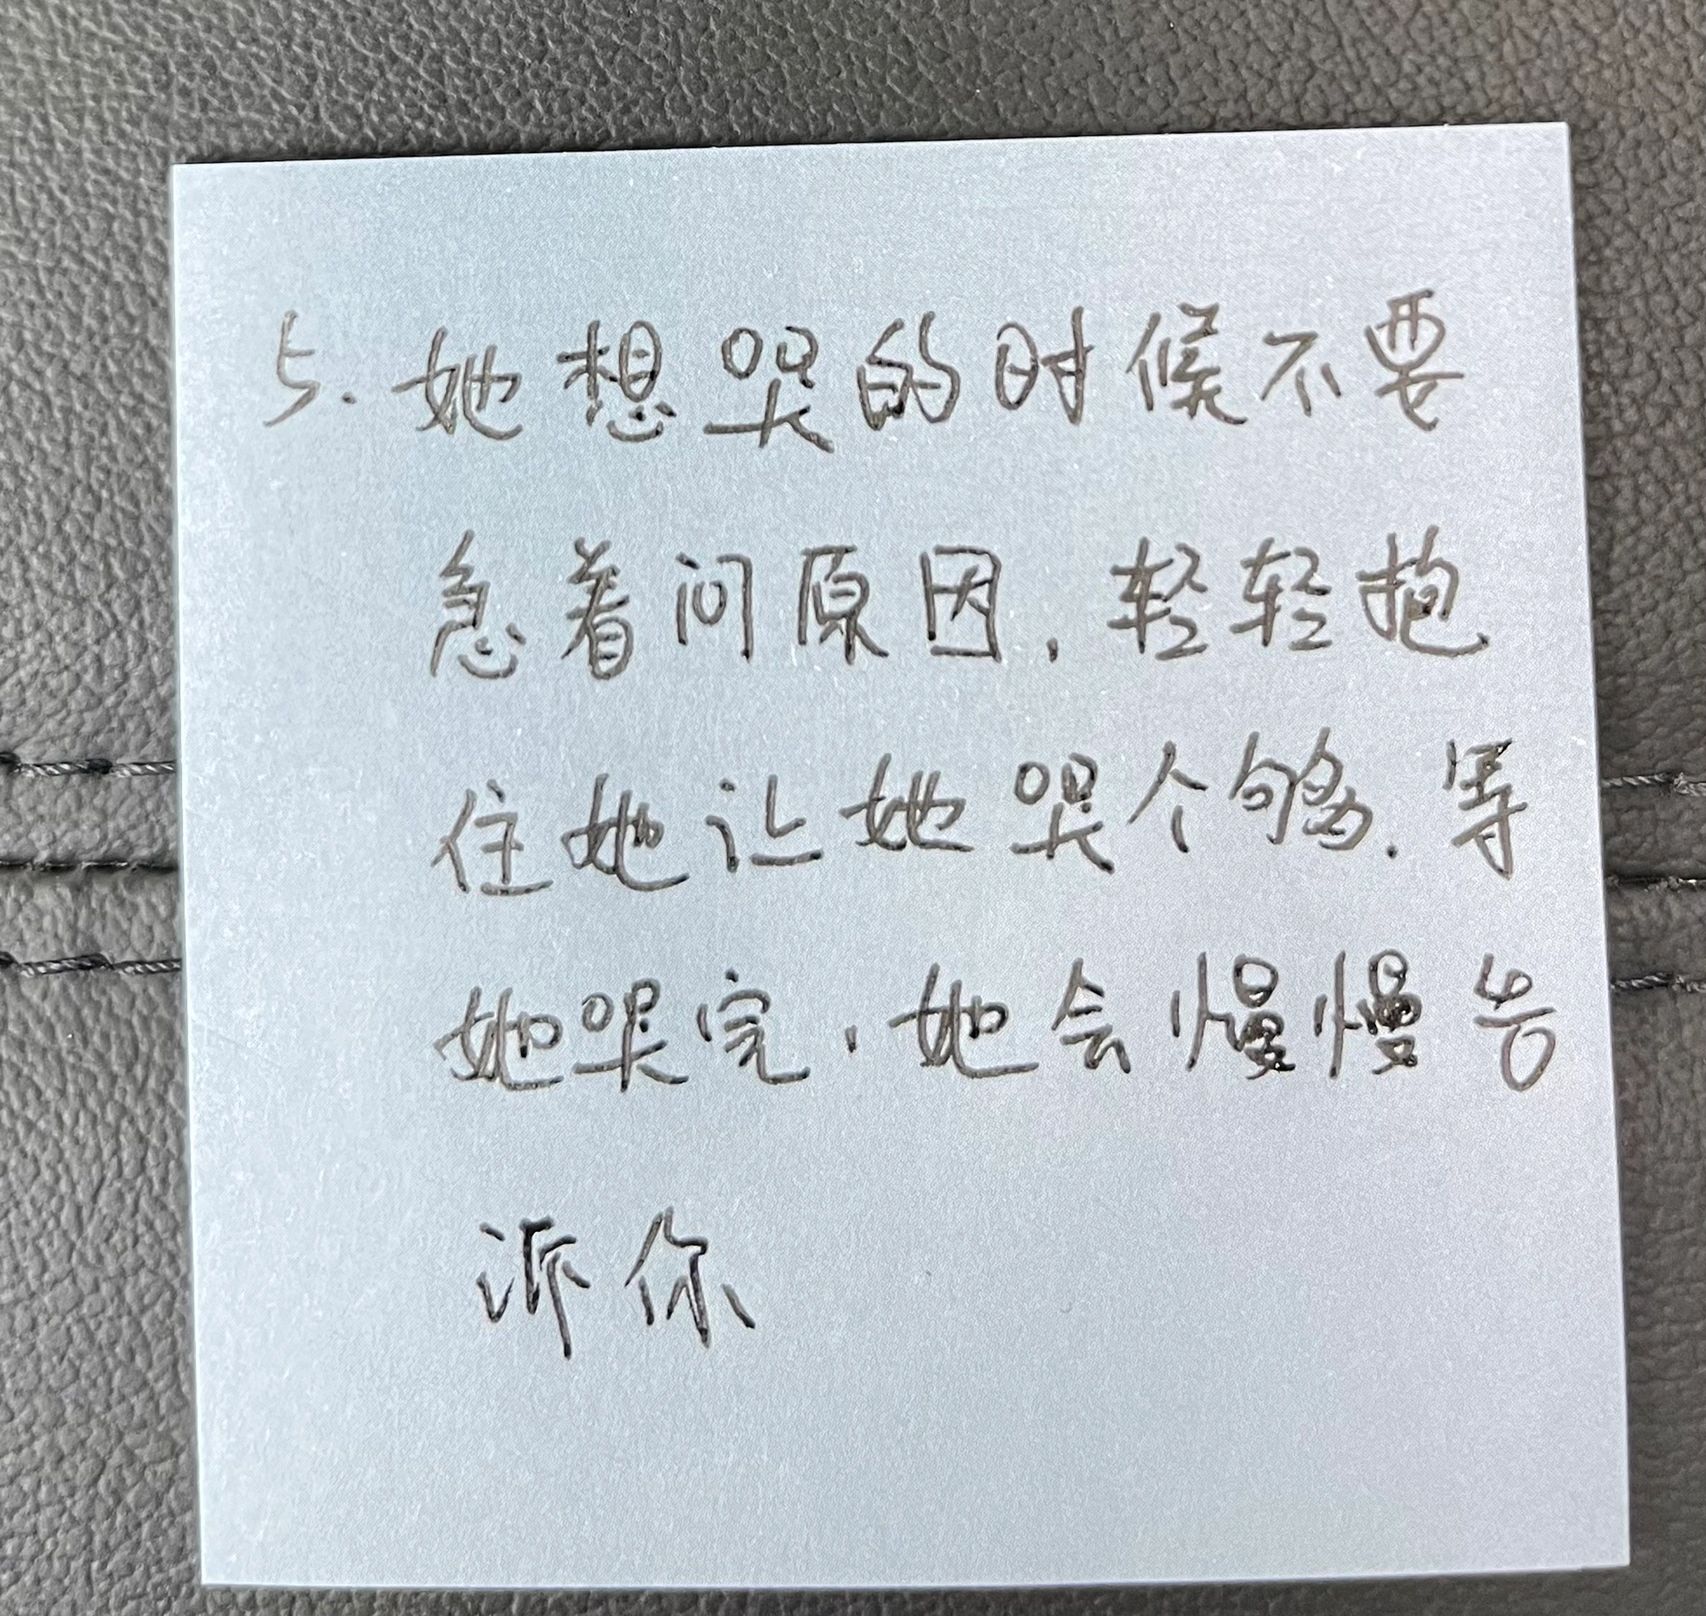 5. 她想哭的时候不要
急着问原因，轻轻抱
住她让她哭个够.等
她哭完，她会慢慢告
诉你